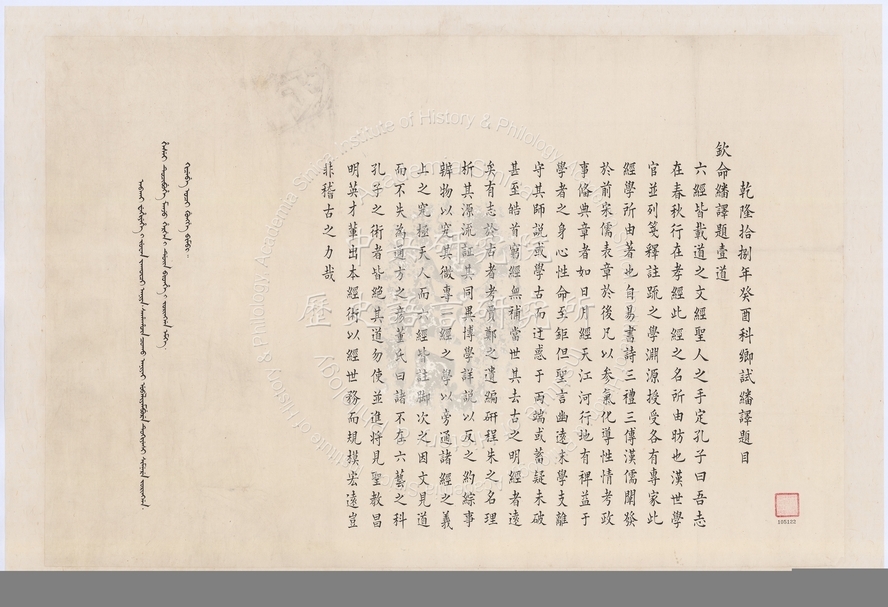 乾隆拾捌年癸酉科鄉試繙譯題目
欽命繙譯題壹道
六經皆載道之文經聖人之手定孔子曰吾志
在春秋行在孝經此經之名所由昉也漢世學
官並列箋釋註疏之學淵源授受各有專家此
經學所由著也自易書詩三禮三傳漢儒闡發
於前宋儒表章於後凡以參氣化導性情考政
事俻典章者如日月經天江河行地有裨益于
學者之身心性命至鉅但聖言幽遠末學支離
守其師說或學古而迂惑于兩端或蓄疑未破
甚至皓首窮經無補當世其去古之明經者遠
矣有志於古者考賈鄭之遺編研程朱之名理
析其源流証其同異博學詳說以反之約綜事
辨物以究其微專一經之學以旁通諸經之義
上之究極天人而六經皆註脚次之因文見道
而不失為通方之彥董氏曰諸不在六藝之科
孔子之術者皆絕其道勿使並進將見聖教昌
明英才輩出本經術以經世務而規模宏遠豈
非稽古之力哉
105122
中央研究院
歷史語言研究所
Institute of History & Philology, Academia Sinica